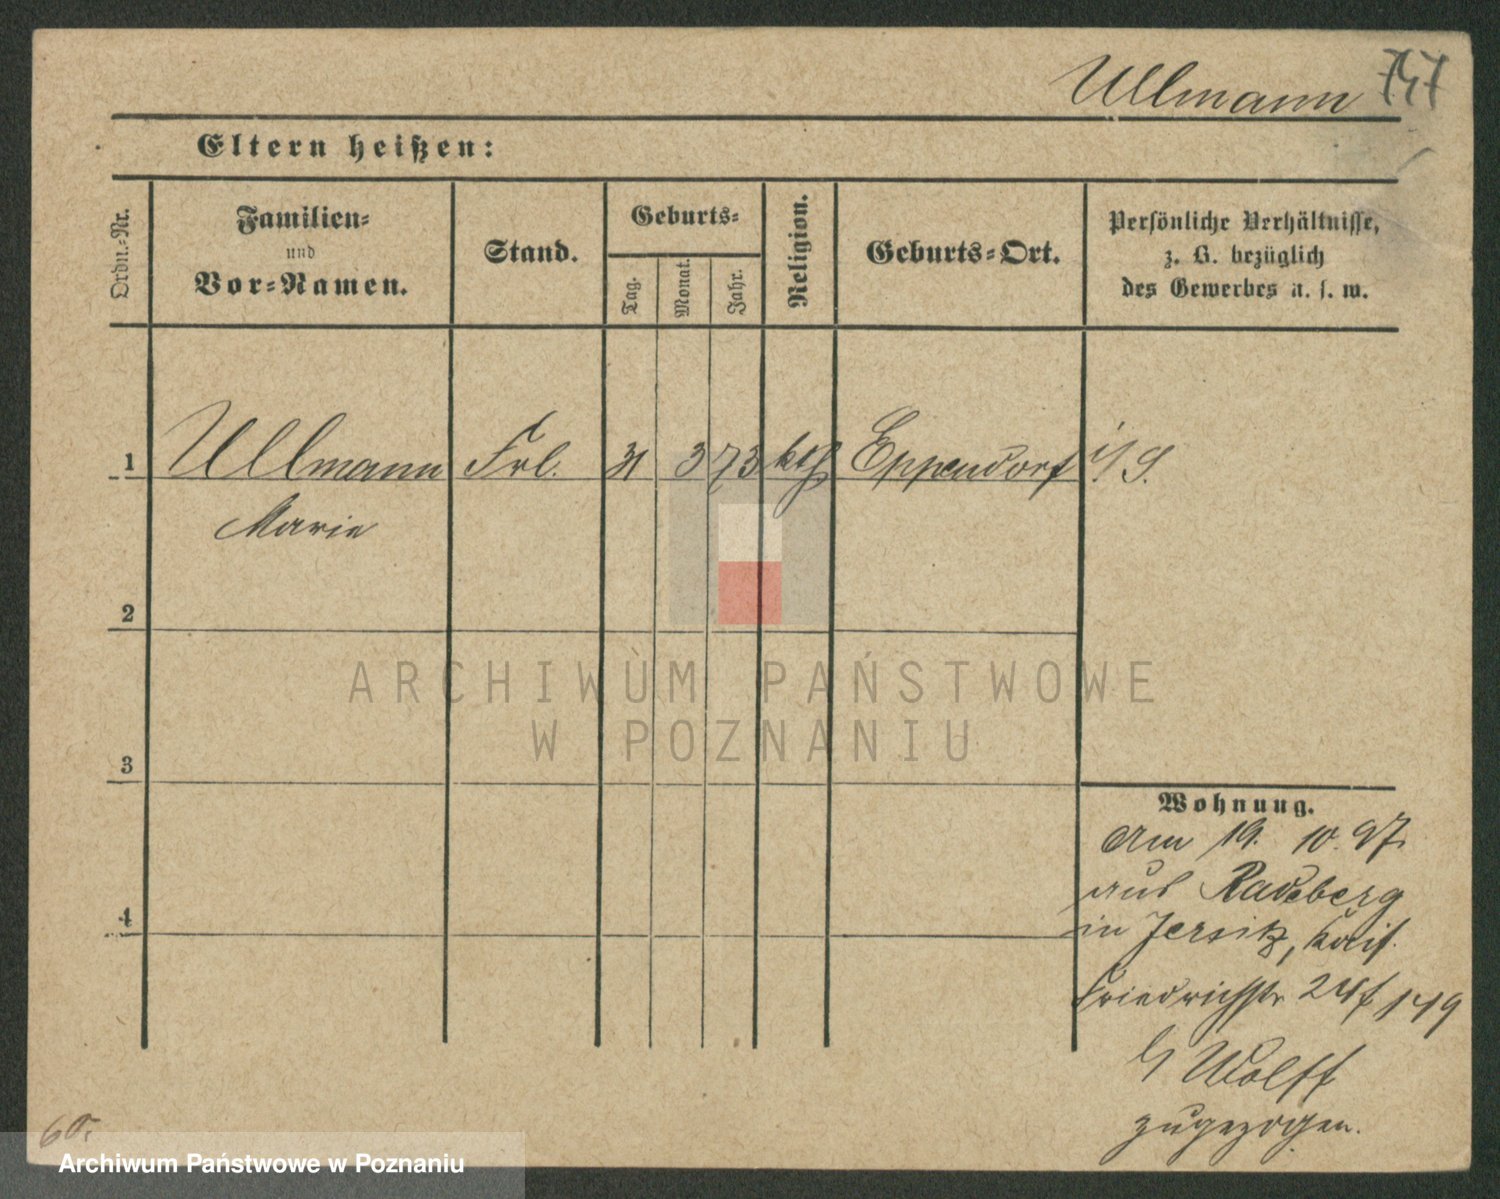 Ullmann 747
Eltern heißen:
Ordn.-Nr.
Familien-
und
Vor-Namen.
Stand.
Geburts-
Tag.
Monat.
Jahr.
Religion.
Geburts-Ort.
Persönliche Verhältnisse,
z. B. bezüglich
des Gewerbes u. s. w.
1 Ullmann Frl. 31 3 73 kth Eppendorf i/S.
Marie
2
3
4
Wohnung.
Am 19. 10. 97.
aus Radeberg
in Jersitz, Kais.
Friedrichstr 249
b/ Wolff
zugezogen.
ARCHIWUM PAŃSTWOWE
W POZNANIU
Archiwum Państwowe w Poznaniu